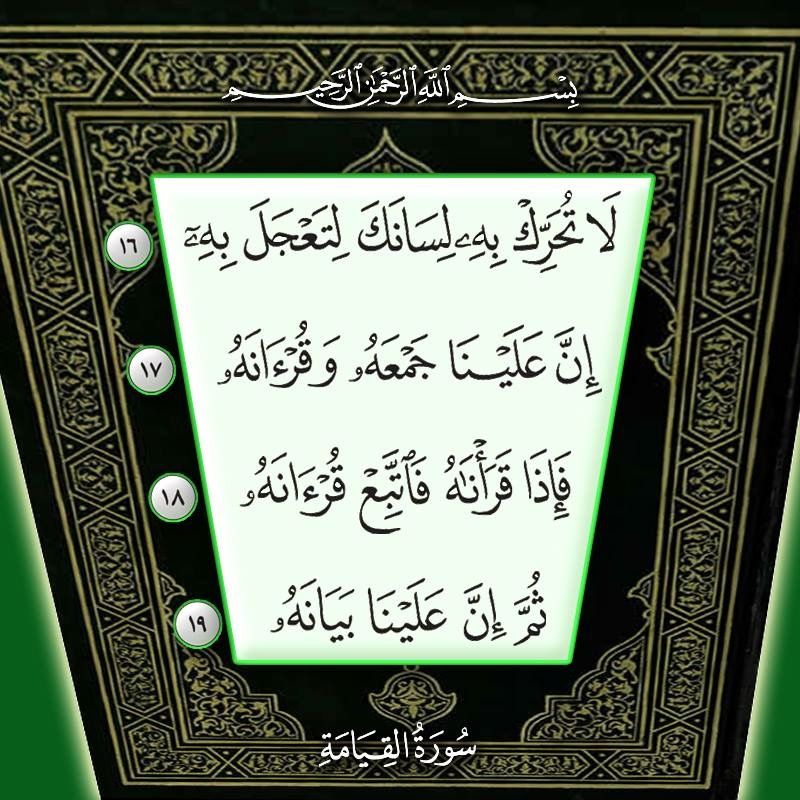 بِسْمِ ٱللَّهِ ٱلرَّحْمَٰنِ ٱلرَّحِيمِ
لَا تُحَرِّكْ بِهِۦ لِسَانَكَ لِتَعْجَلَ بِهِۦٓ ١٦
إِنَّ عَلَيْنَا جَمْعَهُۥ وَقُرْءَانَهُۥ ١٧
فَإِذَا قَرَأْنَٰهُ فَٱتَّبِعْ قُرْءَانَهُۥ ١٨
ثُمَّ إِنَّ عَلَيْنَا بَيَانَهُۥ ١٩
سُورَةُ القِيَامَةِ